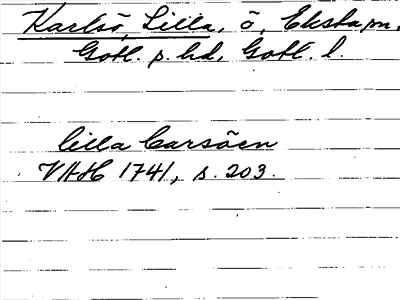 Karlsö, Lilla, ö, Eksta sn.
Gotl. s. hd, Gotl. l.
lilla Carsöen
VHH 1741, s. 203.